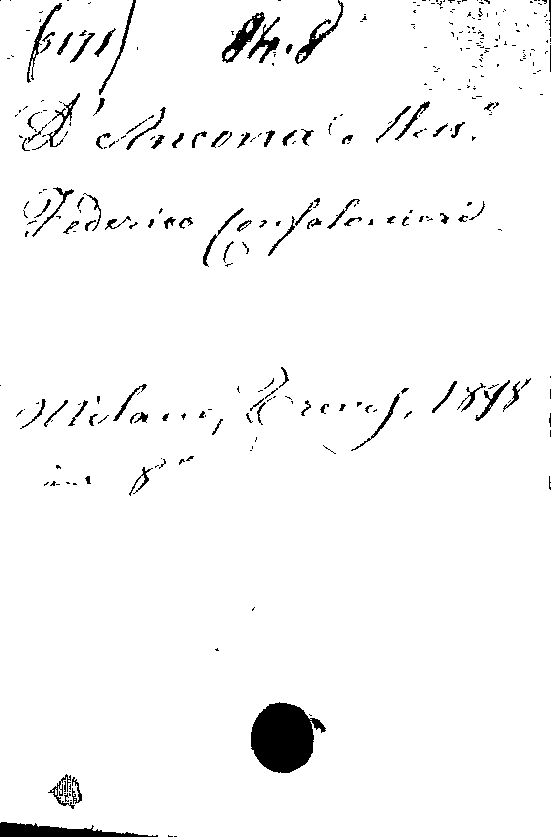 (3171) 84.8
D'Ancona Aless.º
Federico Confalonieri
Milano, Treves, 1898
in 8º